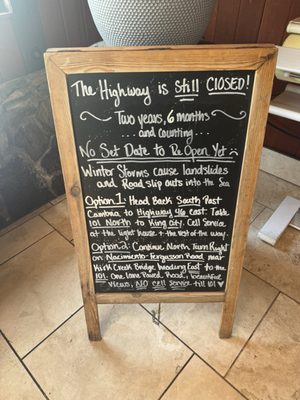 The Highway is Still CLOSED!
Two years, 6 months
...and counting...
No Set Date to Re Open Yet
Winter Storms cause landslides
and Road slip outs into the Sea
Option 1: Head Back South Past
Cambria to Highway 46 east. Take
101 North to King City. Cell Service
at the light house + the rest of the way.
Option 2: Continue North, Turn Right
on Nacimiento-Fergusson Road near
Kirk Creek Bridge heading East to the
101. One lane Paved Road, beautiful
views, NO Cell Service till 101